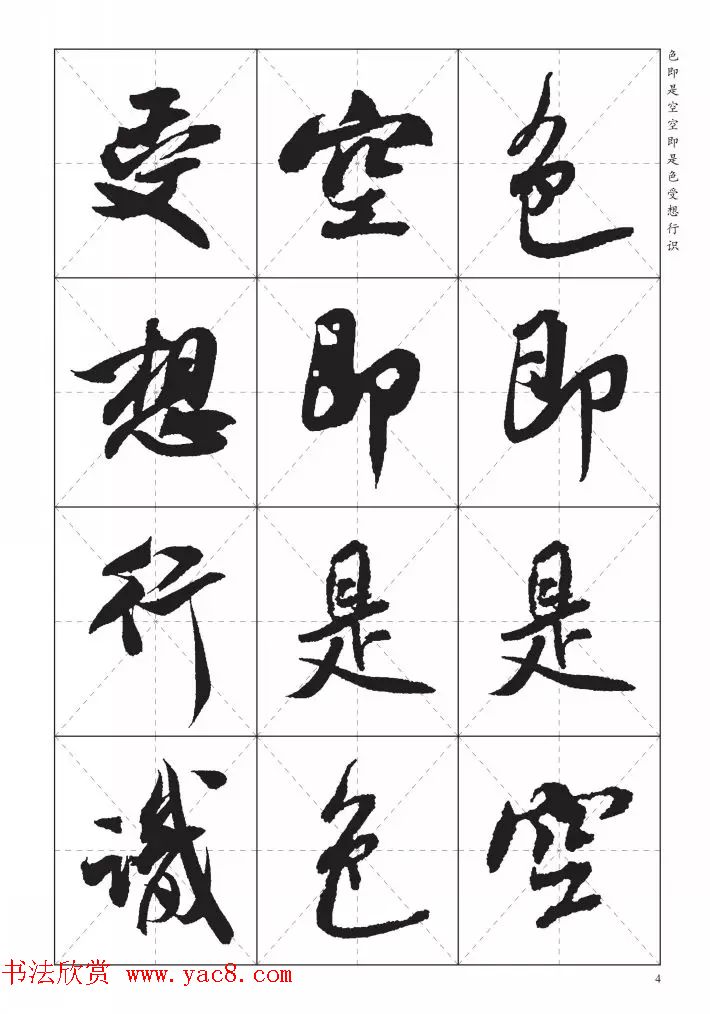 色即是空空即是色受想行识
色即是空
空即是色
受想行識
书法欣赏 www.yac8.com
4